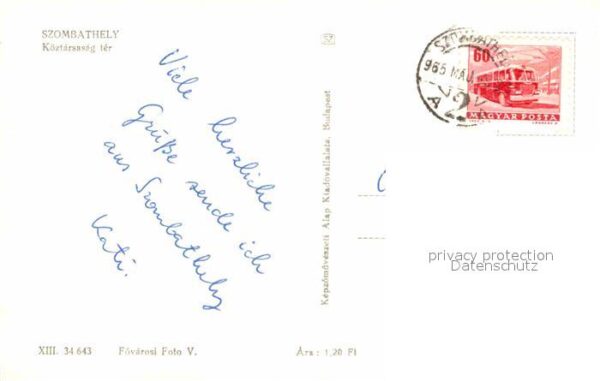 SZOMBATHELY
Köztársaság tér
Viele herzliche
Grüße sende ich
aus Szombathely
Kati.
Képzőművészeti Alap Kiadóvállalata, Budapest
SZOMBATHELY
965 MÁJ.
A 2
60f
MAGYAR POSTA
privacy protection
Datenschutz
XIII. 34 643 Fővárosi Foto V. Ára: 1,20 Ft